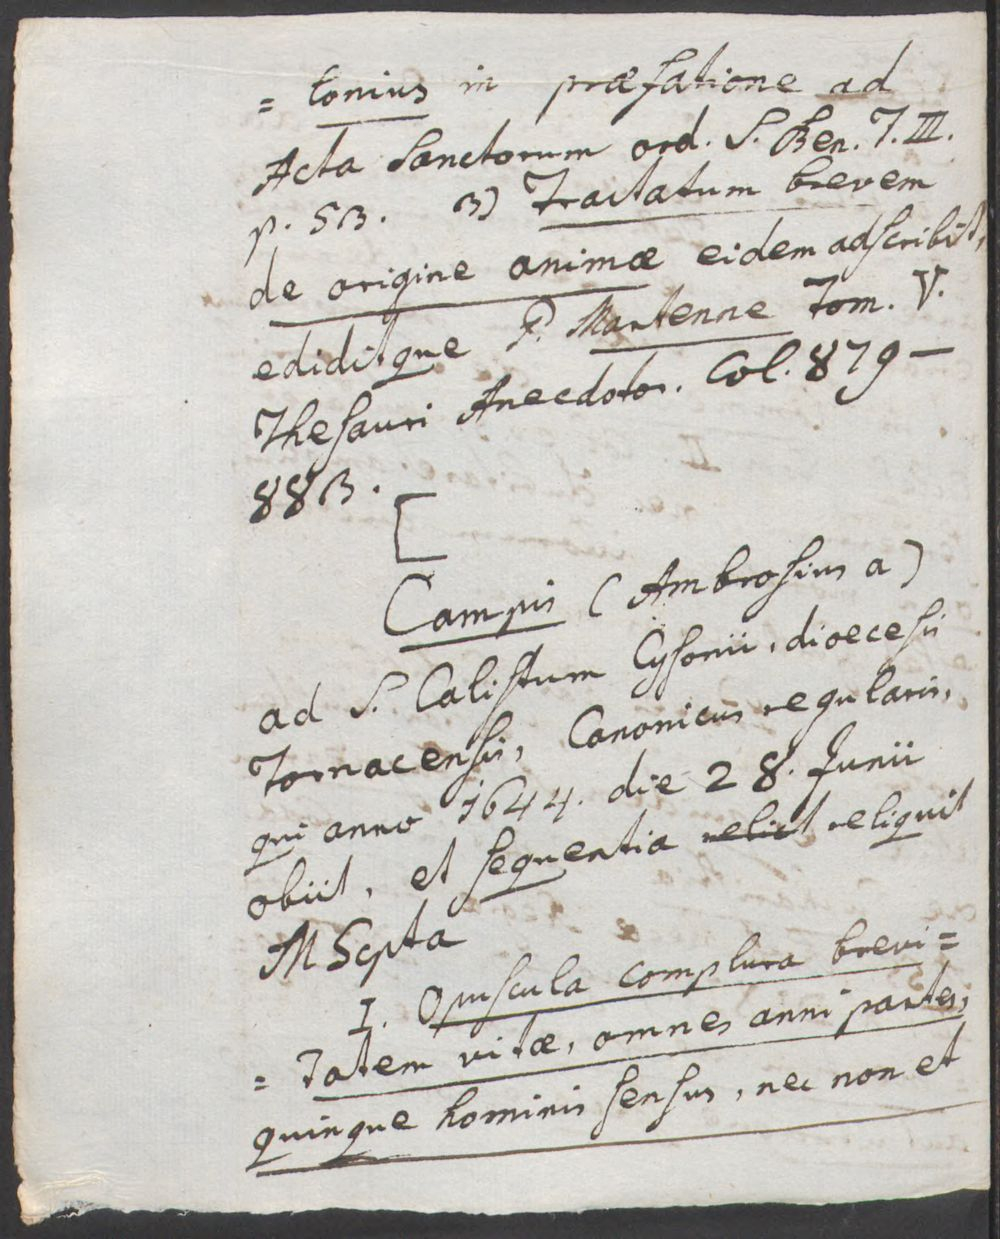 = tonius in præfatione ad
Acta Sanctorum ord. S. Ben. T. III.
p. 53. 3) Tractatum brevem
de origine animæ eidem adscribit,
ediditque P. Martenne Tom. V.
Thesauri Anecdotor. Col. 879 –
883.
[
Campis (Ambrosius a)
ad S. Calistum Cysonii, dioecesis
Tornacensis, Canonicus regularis,
qui anno 1644. die 28. Junii
obiit, et sequentia relict reliquit
MScpta
I. Opuscula complura brevi=
= tatem vitæ, omnes anni partes,
quinque hominis sensus, nec non et